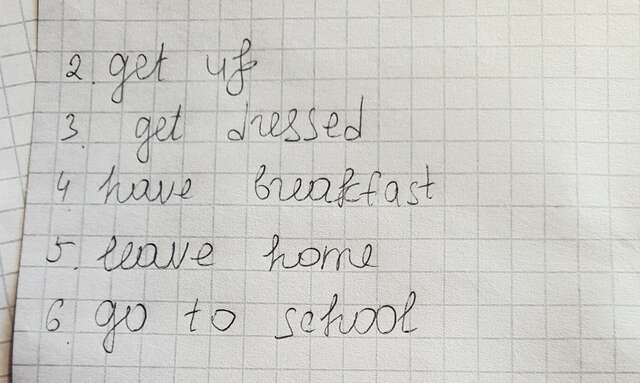 2. get up
3. get dressed
4 have breakfast
5. leave home
6 go to school